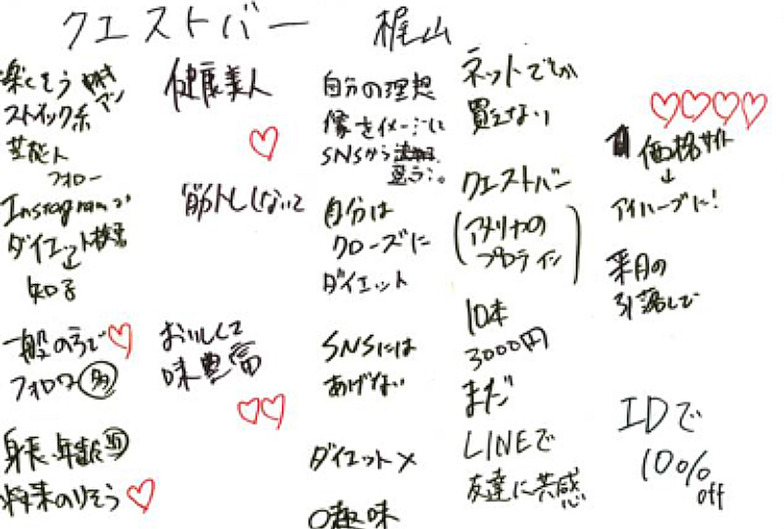 クエストバー 梶山
楽しそう
ストイック系
芸能人
フォロー
Instagramで
ダイエット検索
↓
知る
一般の方で♡
フォロワ 多
身長・年齢 近
将来のりそう♡
健康美人
♡
筋トレしないで
おいしくて
味豊富
♡♡
自分の理想
像をイメージに
SNSから
自分は
クローズに
ダイエット
SNSには
あげない
ダイエット×
○趣味
ネットでしか
買えない
クエストバー
(アメリカの
プロテイン)
10本
3000円
まだ
LINEで
友達に共感
♡♡♡♡
価格サイト
↓
アイハーブに!
来月の
引落しで
IDで
10%
off